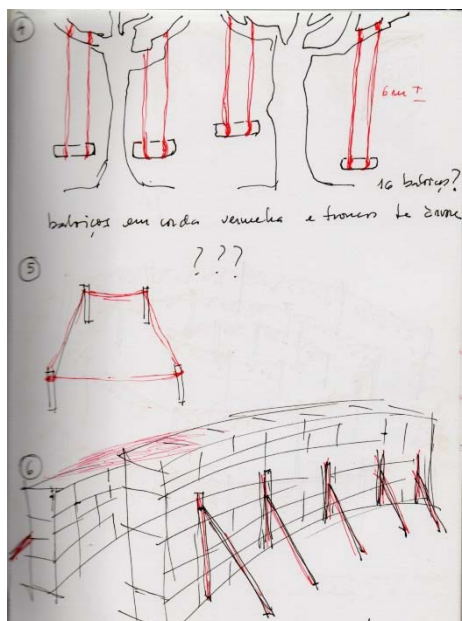 4
6 m ±
16 baloiços?
baloiços em corda vermelha e troncos de árvore
???
5
6